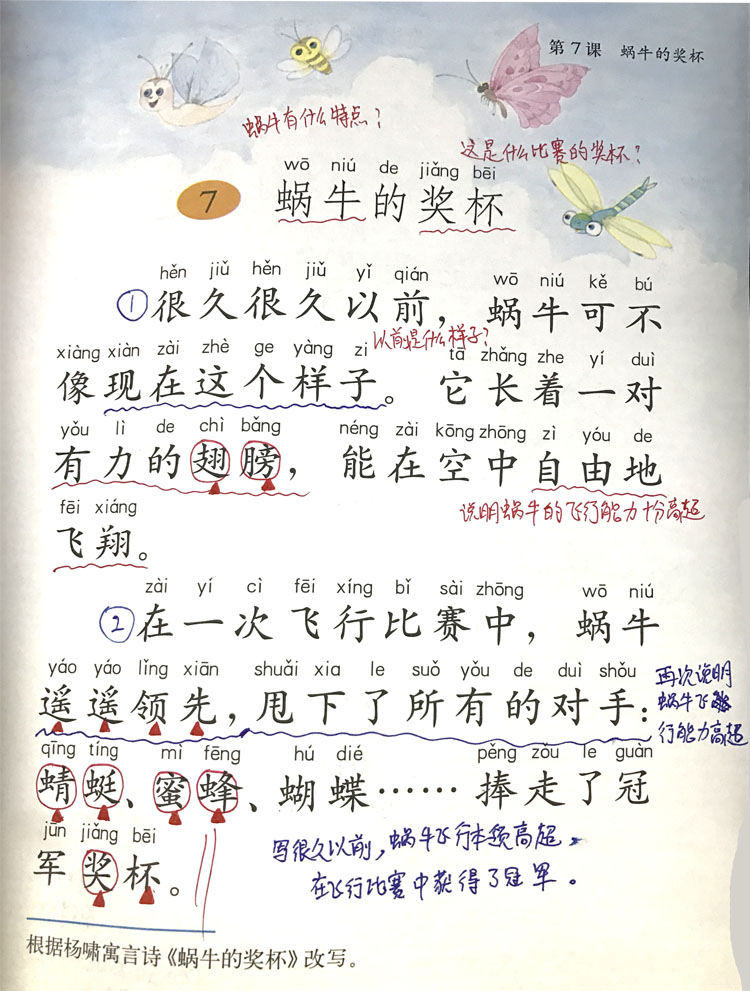 第7课 蜗牛的奖杯
蜗牛有什么特点？
这是什么比赛的奖杯？
wō niú de jiǎng bēi
7 蜗牛的奖杯
hěn jiǔ hěn jiǔ yǐ qián wō niú kě bú
①很久很久以前，蜗牛可不
以前是什么样子？
xiàng xiàn zài zhè ge yàng zi tā zhǎng zhe yí duì
像现在这个样子。它长着一对
yǒu lì de chì bǎng néng zài kōng zhōng zì yóu de
有力的翅膀，能在空中自由地
说明蜗牛的飞行能力十分高超
fēi xiáng
飞翔。
zài yí cì fēi xíng bǐ sài zhōng wō niú
②在一次飞行比赛中，蜗牛
yáo yáo lǐng xiān shuǎi xia le suǒ yǒu de duì shǒu
遥遥领先，甩下了所有的对手：
再次说明
蜗牛飞
行能力高超
qīng tíng mì fēng hú dié pěng zǒu le guàn
蜻蜓、蜜蜂、蝴蝶……捧走了冠
jūn jiǎng bēi
军奖杯。
写很久以前，蜗牛飞行本领高超，
在飞行比赛中获得了冠军。
根据杨啸寓言诗《蜗牛的奖杯》改写。